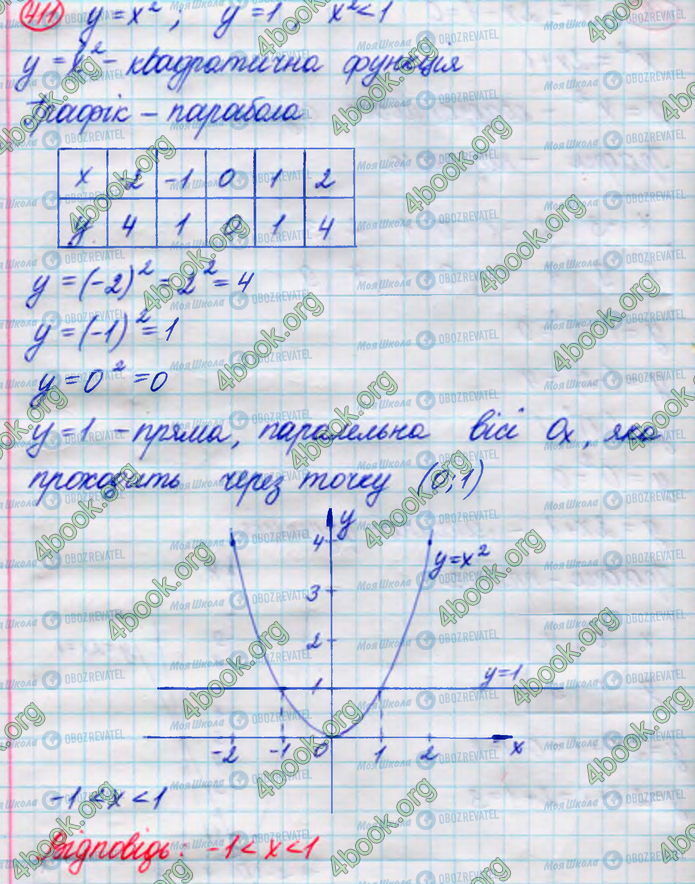 411 y = x², y = 1, x² < 1
y = x² - квадратична функція
Графік - парабола
x -2 -1 0 1 2
y 4 1 0 1 4
y = (-2)² = 2² = 4
y = (-1)² = 1
y = 0² = 0
y = 1 - пряма, паралельна вісі Ox, яка
проходить через точку (0; 1)
y
4
y = x²
3
2
y = 1
1
-2 -1 0 1 2 x
-1 < x < 1
Відповідь: -1 < x < 1
4book.org
МояШкола OBOZREVATEL